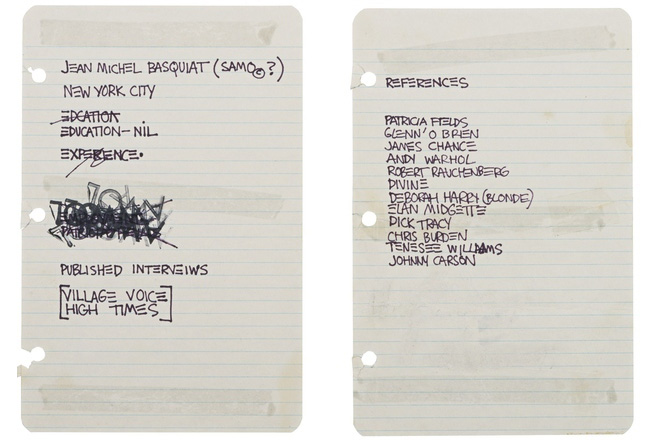 JEAN MICHEL BASQUIAT (SAMO©?)
NEW YORK CITY
EDCATION
EDUCATION-NIL
EXPERENCE.
PUBLISHED INTERVEIWS
[VILLAGE VOICE
HIGH TIMES]
REFERENCES
PATRICIA FIELDS
GLENN'O BRIEN
JAMES CHANCE
ANDY WARHOL
ROBERT RAUCHENBERG
DIVINE
DEBORAH HARRY (BLONDE)
ELAN MIDGETTE
DICK TRACY
CHRIS BURDEN
TENESEE WILLAMS
JOHNNY CARSON